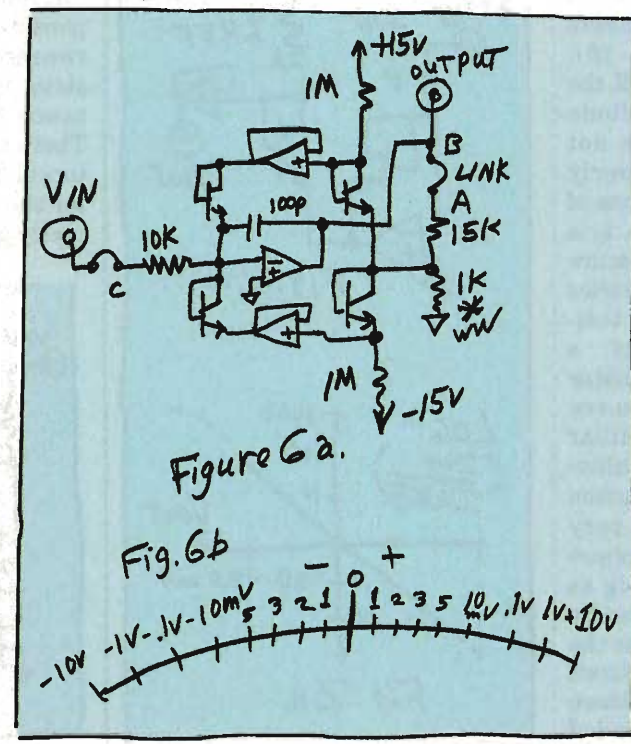 +15V
1M
OUTPUT
B
B
LINK
A
15K
1K
*
WW
VIN
C
10K
100p
+
-
+
+
1M
-15V
Figure 6a.
Fig. 6b
- 0 +
-10V -1V -.1V -10mV 5 3 2 1 1 2 3 5 10mV .1V 1V +10V